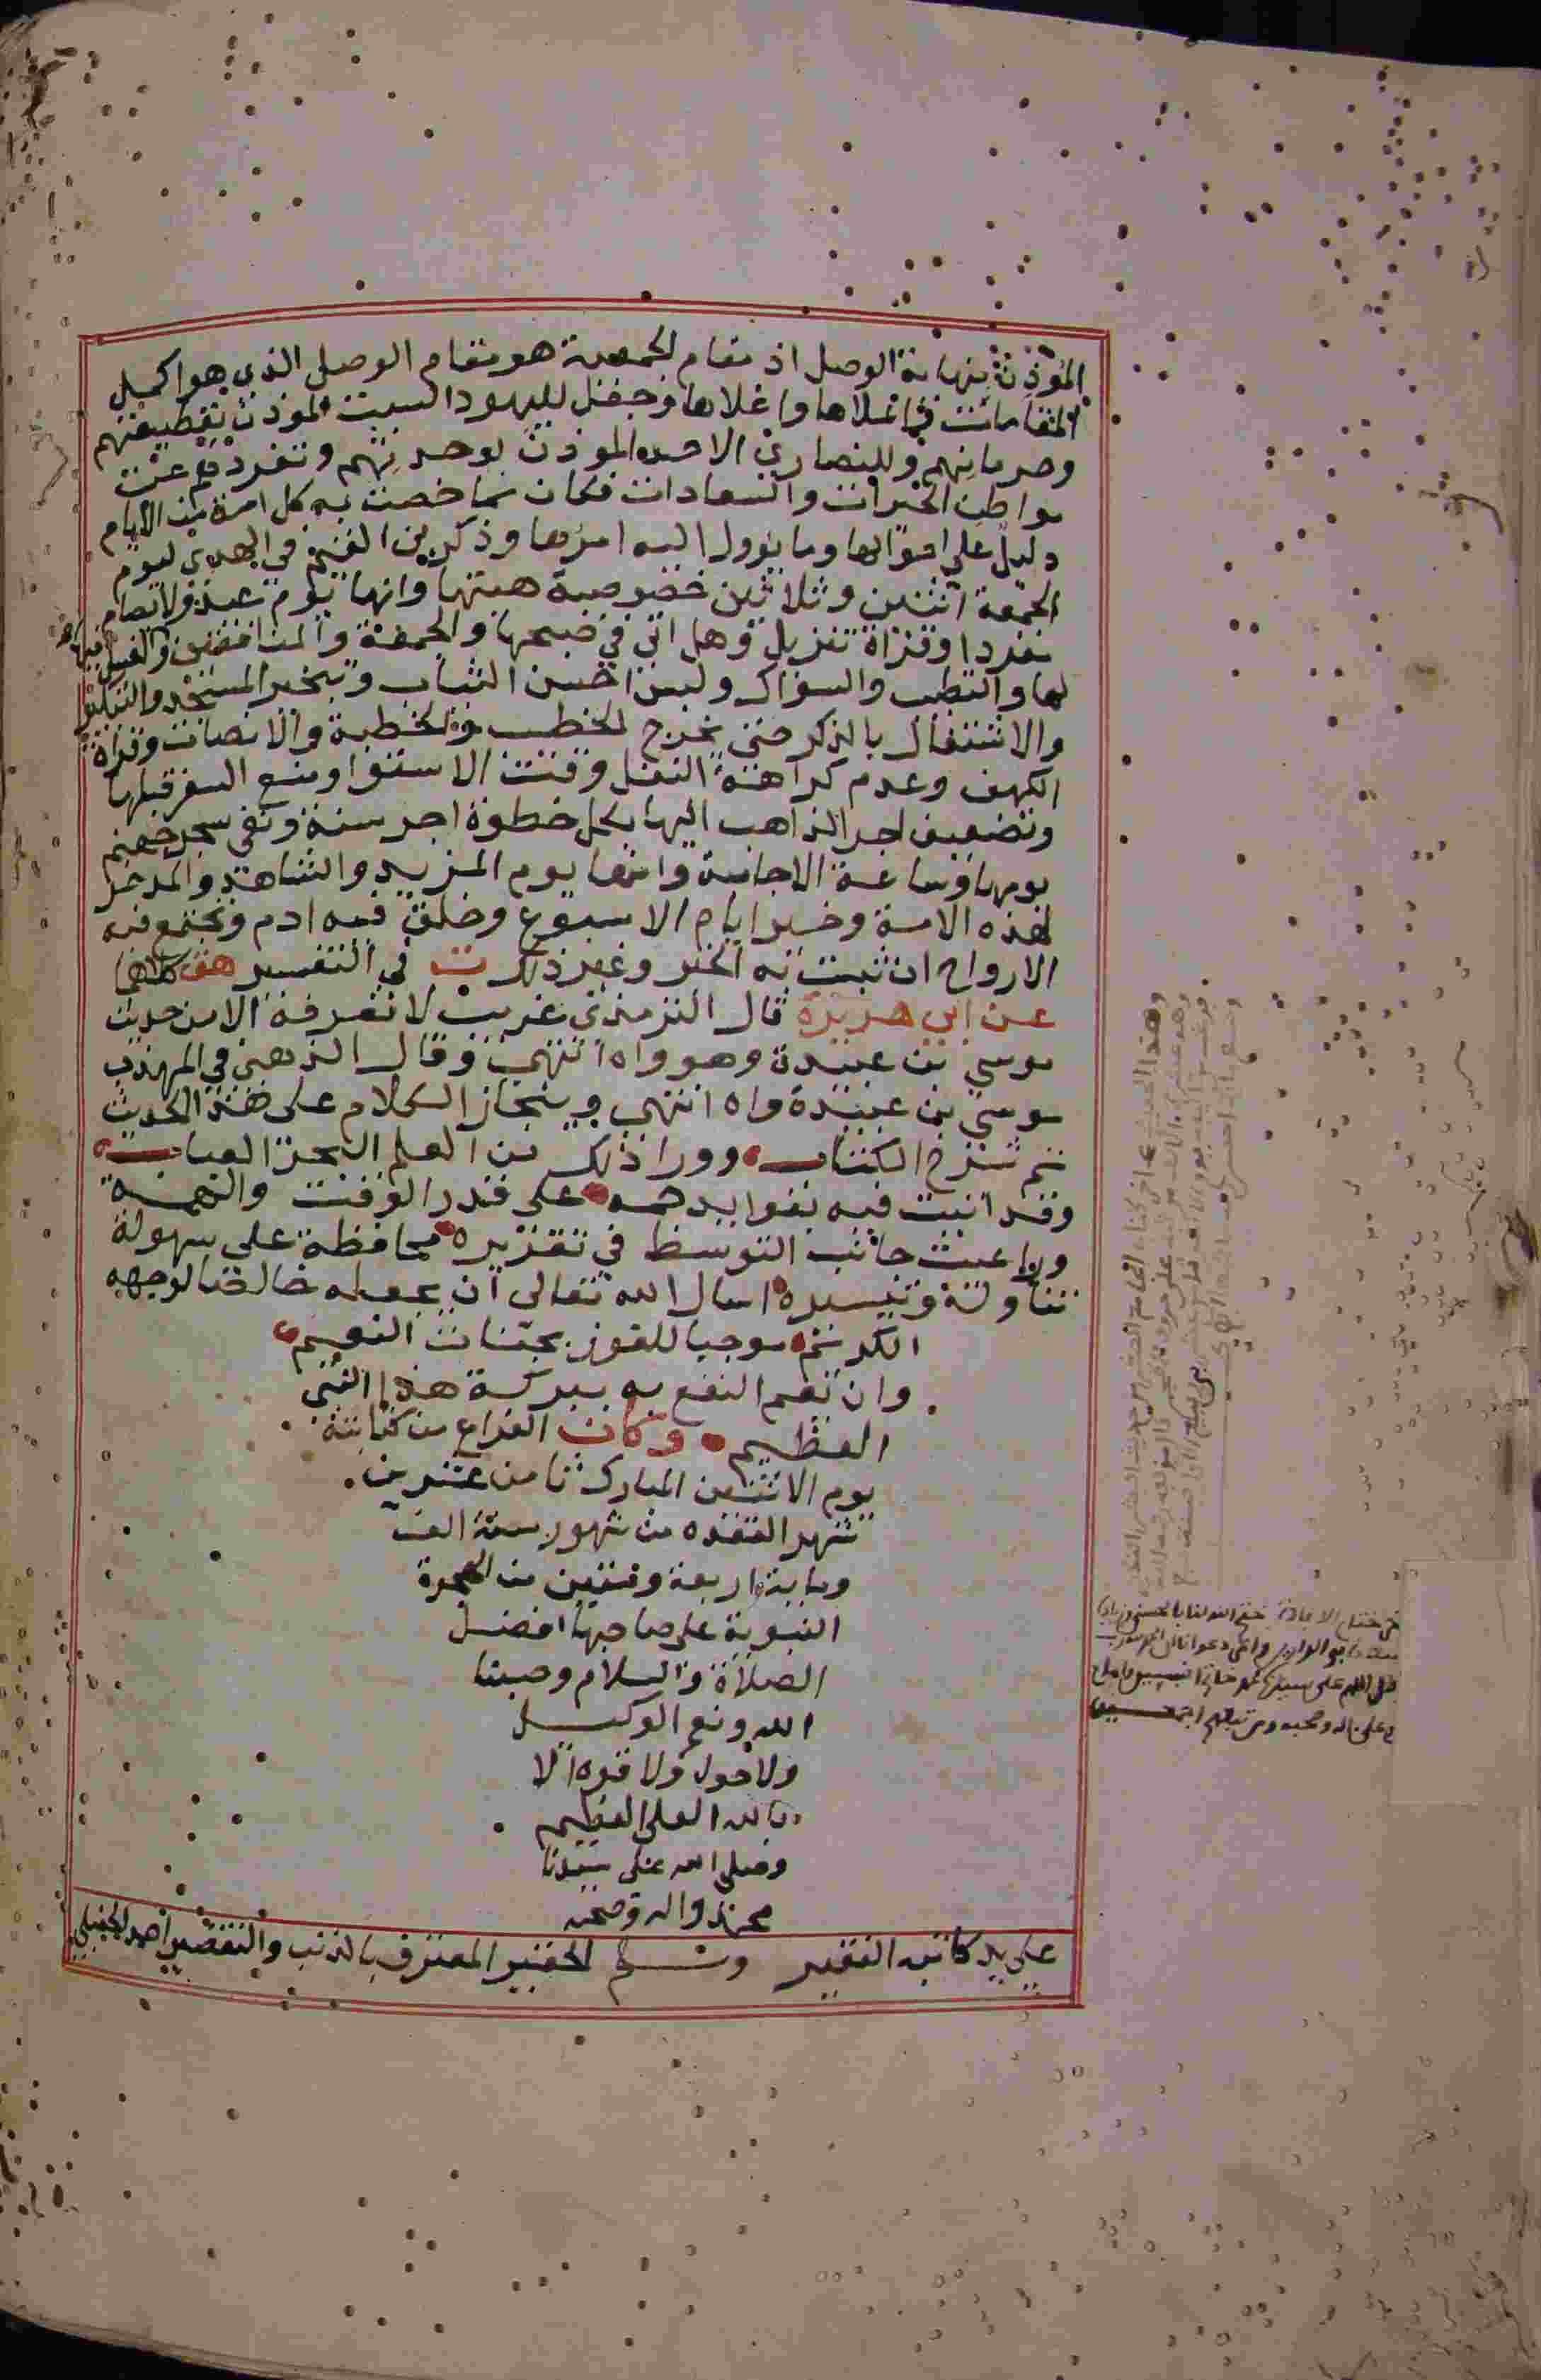 الموذن بنهاية الوصل اذ مقام الجمعة هو مقام الوصل الذي هو اكمل
المقامات واعلاها واغلاها وجعل لليهود السبت الموذن بقطيعتهم
وحرمانهم وللنصارى الاحد الموذن بوحدتهم وتفردهم عن
مواطن الخيرات والسعادات فكان ما خصت به كل امة من الايام
دليل على احوالها وما يؤول اليه امرها وذكر بن القيم في الهدى ليوم
الجمعة اثنتين وثلاثين خصوصية هيئتها وانها يوم عيد ولا تصام
منفردا وقراة تنزيل وهل اتى في صبحها والجمعة والمنافقين والغسل فيها
لها والتطيب والسواك ولبس احسن الثياب وتبخير المسجد والتبكير
والاشتغال بالذكر حتى يخرج الخطيب والخطبة والانصات وقراة
الكهف وعدم كراهة النفل وقت الاستوا ومنع السفر قبلها
وتضعيف اجر الذاهب اليها بكل خطوة اجر سنة ونفي سجر جهنم
يومها وساعة الاجابة وانها يوم المزيد والشاهد والمدخر
لهذه الامة وخير ايام الاسبوع وخلق فيه ادم وتجتمع فيه
الارواح ان ثبت به الخبر وغير ذلك ت في التفسير هق كلاهما
عن ابي هريرة قال الترمذي غريب لا نعرفه الا من حديث
موسى بن عبيدة وهو واه انتهى وقال الذهبي في المهذب
موسى بن عبيدة واه انتهى وبنجاز الكلام على هذا الحديث
تم شرح الكتاب وورا ذلك من العلم البحر العباب
وقد اتيت فيه بفوايد جمه على قدر الوقت والهمه
وراعيت جانب التوسط في تقريره محافظة على سهولة
تناوله وتيسيره اسال الله تعالى ان يجعله خالصا لوجهه
الكريم موجبا للفوز بجنات النعيم
وان يعم النفع به ببركة هذا النبي
العظيم وكان الفراغ من كتابته
يوم الاثنين المبارك ثامن عشرين
شهر القعده من شهور سنة الف
وماية اربعة وستين من الهجرة
النبوية على صاحبها افضل
الصلاة والسلام وحسبنا
الله ونعم الوكيل
ولا حول ولا قوه الا
بالله العلي العظيم
وصلى الله على سيدنا
محمد واله وصحبه
على يد كاتبه الفقير الحقير المعترف بالذنب والتقصير احمد الحنبلي
وهذا الحديث
في ختام الافادة ختم الله لنا بالحسنى
صل اللهم على سيدنا محمد خاتم النبيين
وعلى اله وصحبه ومن تبعهم اجمعين